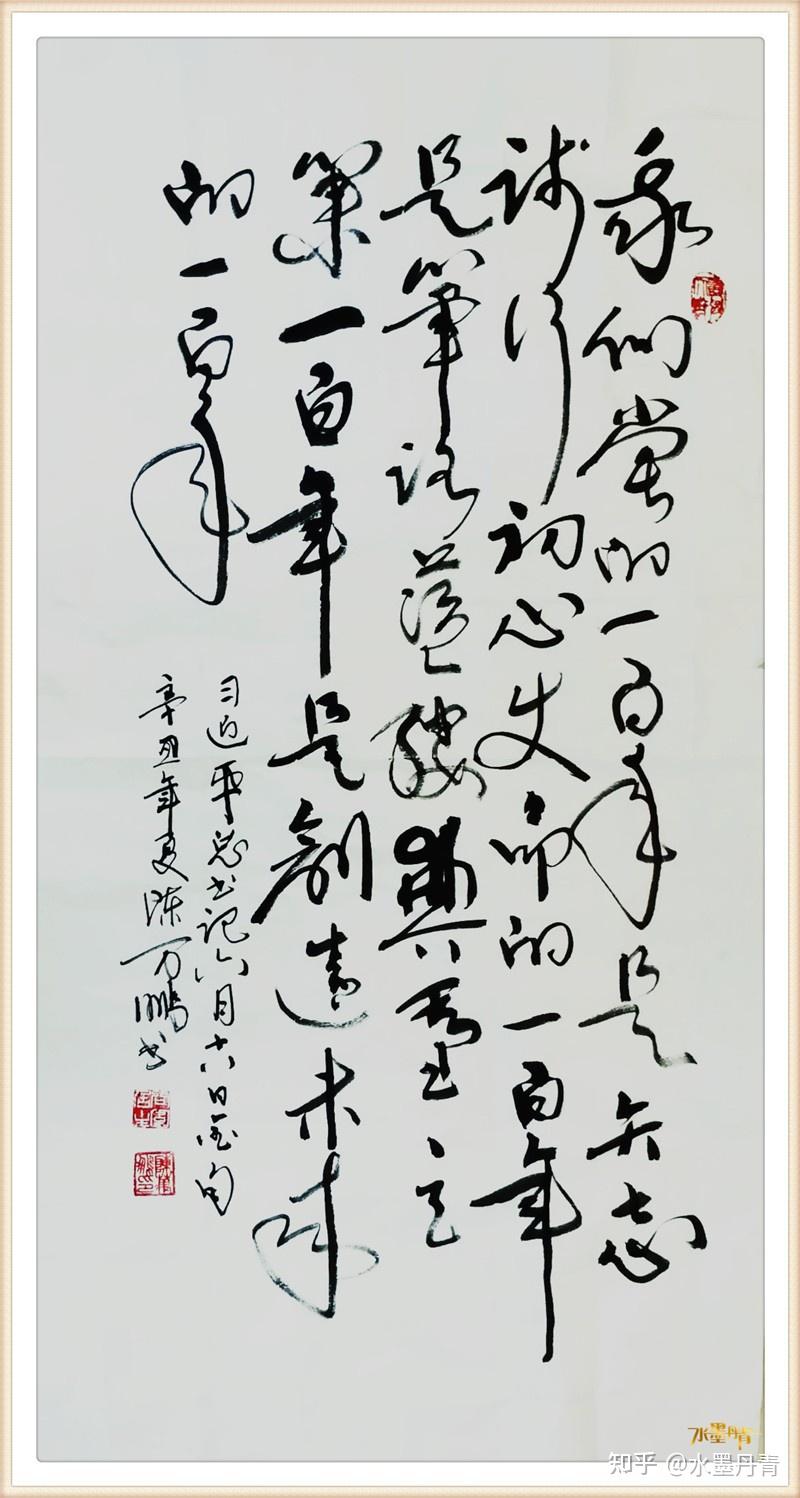 我们党的一百年是矢志
践行初心使命的一百年
是筚路蓝缕基立
業一百年是創造未来
的一百年
习近平总书记六月十八日金句
辛丑年夏陈万鹏书
水墨丹青
知乎 @水墨丹青